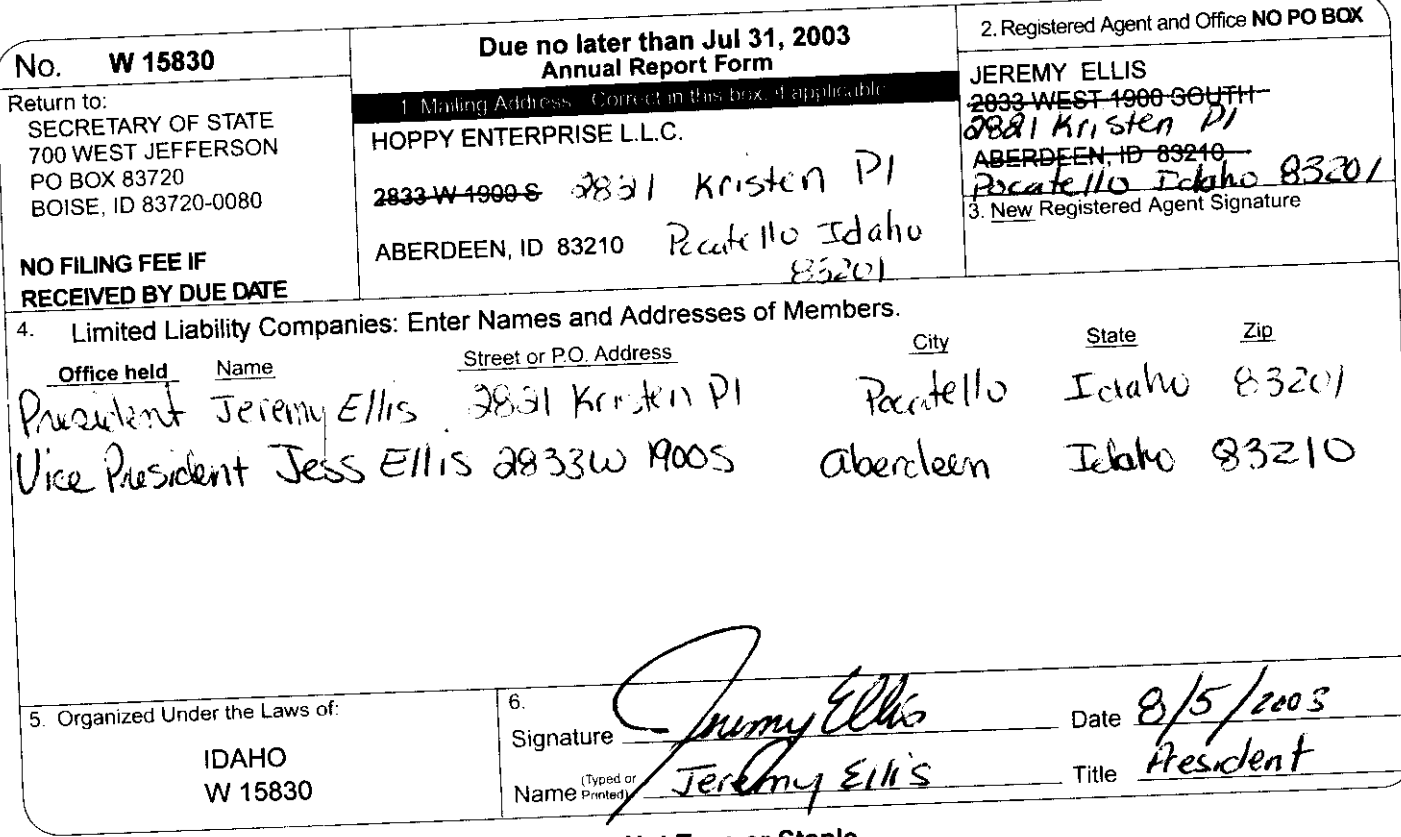 No. W 15830
Return to:
SECRETARY OF STATE
700 WEST JEFFERSON
PO BOX 83720
BOISE, ID 83720-0080
NO FILING FEE IF
RECEIVED BY DUE DATE
Due no later than Jul 31, 2003
Annual Report Form
1. Mailing Address Correct in this box, if applicable
HOPPY ENTERPRISE L.L.C.
2833 W 1900 S 2821 Kristen Pl
ABERDEEN, ID 83210 Pocatello Idaho
83201
2. Registered Agent and Office NO PO BOX
JEREMY ELLIS
2833 WEST 1900 SOUTH
2821 Kristen Pl
ABERDEEN, ID 83210
Pocatello Idaho 83201
3. New Registered Agent Signature
4. Limited Liability Companies: Enter Names and Addresses of Members.
Office held Name Street or P.O. Address City State Zip
President Jeremy Ellis 2821 Kristen Pl Pocatello Idaho 83201
Vice President Jess Ellis 2833W 1900S Aberdeen Idaho 83210
5. Organized Under the Laws of:
IDAHO
W 15830
6.
Signature Jeremy Ellis Date 8/5/2003
Name (Typed or Printed) Jeremy Ellis Title President